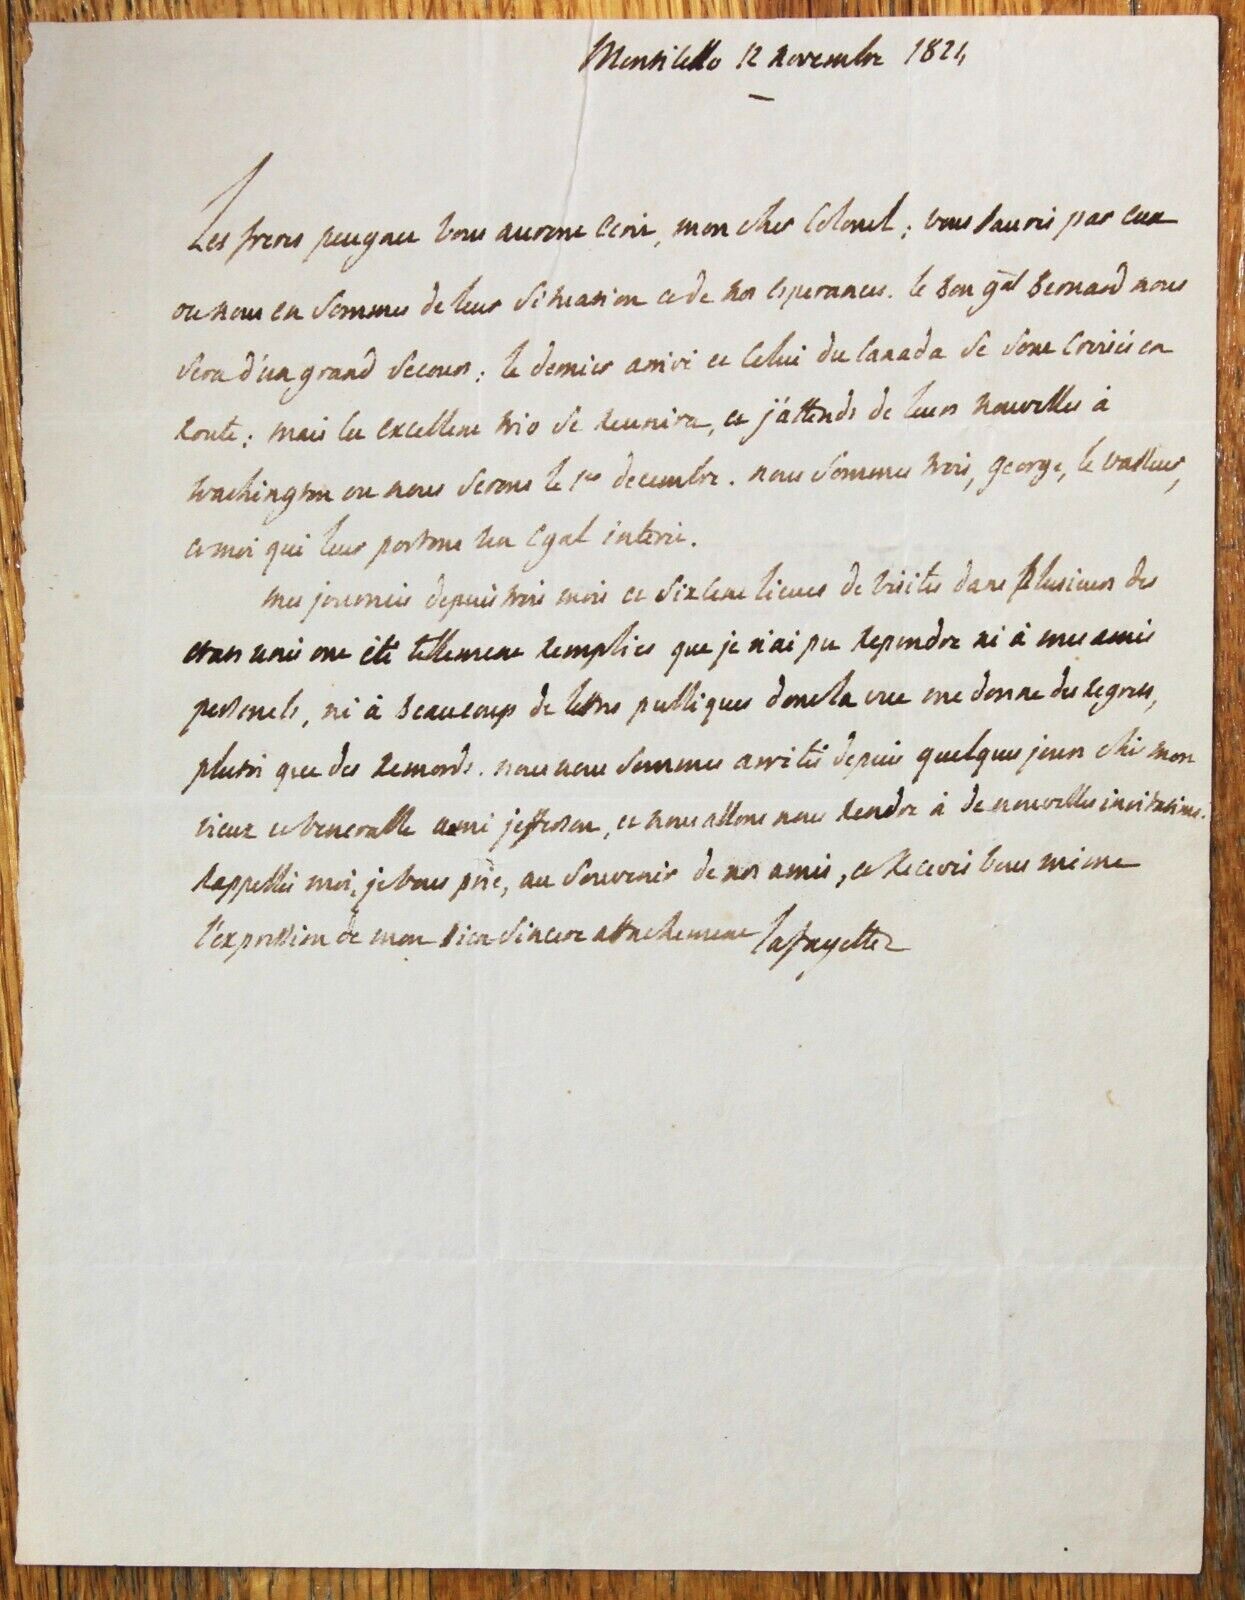 Monticello 12 novembre 1824
Les freres peugnet vous auront ecrit, mon cher Colonel; vous saurés par eux
ou nous en sommes de leur situation et de nos esperances. le bon gal Bernard nous
sera d'un grand secours; le dernier arrivé et celui du Canada se sont croisés en
route; mais cet excellent trio se reunira, et j'attends de leurs nouvelles à
washington ou nous serons le 1er decembre. nous sommes trois, george, le vasseur,
et moi qui leur portons un egal interêt.
mes journées depuis trois mois et six cent lieues de visites dans plusieurs des
etats unis ont été tellement remplies que je n'ai pu repondre ni à mes amis
personels, ni à beaucoup de lettres publiques dont la vue me donne des regrets,
plutot que des remords. nous nous sommes arrités depuis quelques jours chés mon
vieux et venerable ami jefferson, et nous allons nous rendre à de nouvelles invitations.
rappellés moi, je vous prie, au souvenir de nos amis, et recevés vous même
l'expression de mon bien sincere attachement lafayette